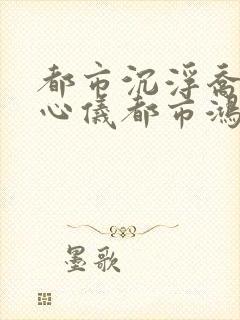 都市沉浮乔
心仪都市鸿
墨歌